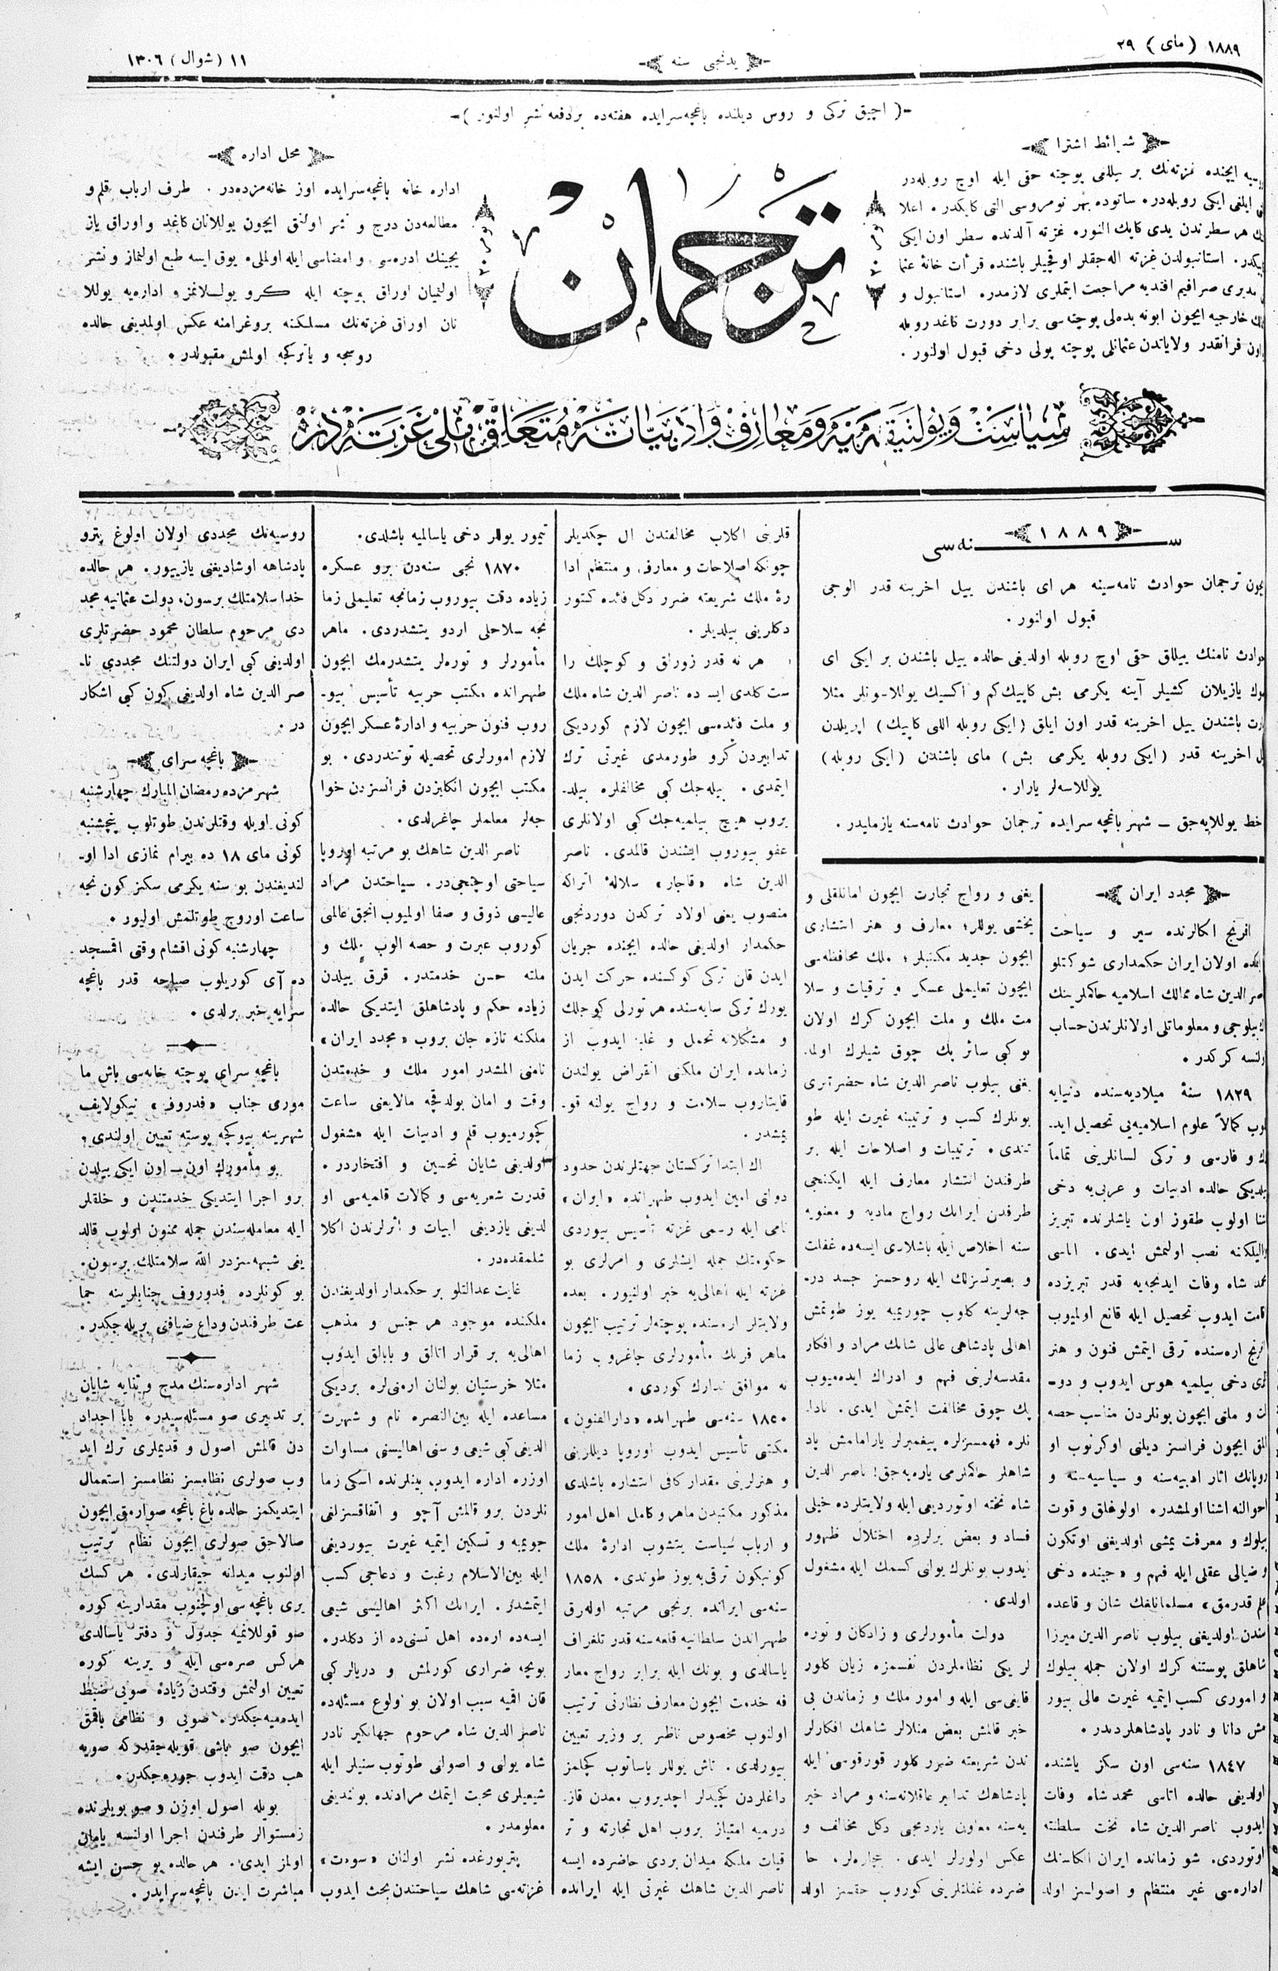 ١٨٨٩ (مای) ٢٩
یدنجی سنه
١١ (شوال) ١٣٠٦
(آچیق ترکی و روس دیلنده باغچه‌سرایده هفته‌ده بر دفعه نشر اولنور)
شرائط اشترا
ایچنده غزته‌نك بر ییللق پوچته حقی ایله اوچ روبله‌در
ایلغی ایکی روبله‌در. صاتوده بهر نومروسی التی کاپکدر. اعلا
هر سطرندن یدی کاپك النور. غزته آلدنده سطر اون ایکی
استانبولدن غزته اله‌جقلر اوقچیلر باشنده قرأت خانۀ عثما
مدیری صرافیم افندیه مراجعت ایتملری لازمدر. استانبول و
خارجیه ایچون ابونه بده‌لی پوچته‌سی برابر دورت کاغد روبله
اون فرانقدر ولایاتدن عثمانلی پوچته پولی دخی قبول اولنور.
ترجمان
محل اداره
اداره خانه باغچه‌سرایده اوز خانه‌مزده‌در. طرف ارباب قلم و
مطالعه‌دن درج و نشر اولنق ایچون یوللانان کاغد و اوراق یاز
یجینك ادره‌سی و امضاسی ایله اولملی. یوق ایسه طبع اولنماز و نشر
اولنمیان اوراق پوچته ایله کرو یوللانمز و اداره‌یه یوللا
نان اوراق غزته‌نك مسلکنه پروغرامنه عکس اولمدیغی حالده
روسجه و یا ترکجه اولمش مقبولدر.
سیاست و پولیتیقه‌یه و معارف و ادبیاته متعلق ملی غزته‌در
١٨٨٩
سنه‌سی
ترجمان حوادث نامه‌سینه هر ای باشندن ییل اخرینه قدر الوجی
قبول اولنور.
نامنك ییللق حقی اوچ روبله اولدیغی حالده ییل باشندن بر ایکی ای
یازیلان کشیلر آینه یکرمی بش کاپیك کم و اکسیك یوللا‌ـونلر مثلا
باشندن ییل اخرینه قدر اون ایلق (ایکی روبله اللی کاپیك) اپریلدن
اخرینه قدر (ایکی روبله یکرمی بش) مای باشندن (ایکی روبله)
یوللاسه‌لر یارار.
خط یوللایه‌جق ـ شهر باغچه‌سرایده ترجمان حوادث نامه‌سنه یازملیدر.
مجدد ایران
افرنج اکالرنده سیر و سیاحت
اولان ایران حکمداری شوکتلو
الدین شاه ممالك اسلامیه حاکملرینك
بیلوجی و معلوماتلی اولانلرندن حساب
کرکدر.
١٨٢٩ سنۀ میلادیه‌سنده دنیایه
کمالاً علوم اسلامیه‌یی تحصیل اید
و فارسی و ترکی لسانلرینی تماماً
حالده ادبیات و عربی‌یه دخی
اولوب طقوز اون یاشلرنده تبریز
نصب اولنمش ایدی. اتاسی
شاه وفات ایدنجه‌یه قدر تبریزده
ایدوب تحصیل ایله قانع اولمیوب
اره‌سنده ترقی ایتمش فنون و هنر
دخی بیلمیه هوس ایدوب و دو
و ملتی ایچون بونلردن مناسب حصه
ایچون فرانسز دیلنی اوکرنوب او
اثار ادبیه‌سنه و سیاسیه‌سنه و
احوالنه اشنا اولمشدر. اولوغلق و قوت
بیلوك و معرفت یمشی اولدیغی اوتکون
و ضیالی عقلی ایله فهم و «چینده دخی
قدرمق» مسلمانلغك شان و قاعده
اولدیغنی بیلوب ناصر الدین میرزا
شاهلق پوستنه کرك اولان جمله بیلوك
و اموری کسب ایتمیه غیرت عالی بیور
مش دانا و نادر پادشاهلردندر.
١٨٤٧ سنه‌سی اون سکز یاشنده
اولدیغی حالده اتاسی محمد شاه وفات
ایدوب ناصر الدین شاه تخت سلطنته
اوتوردی. شو زمانده ایران الکاسنك
اداره‌سی غیر منتظم و اصولسز اولد
یغنی و رواج تجارت ایچون امانلقلی و
یخشی یوللر؛ معارف و هنر انتشاری
ایچون جدید مکتبلر؛ ملك محافظه‌سی
ایچون تعلیملی عسکر و ترقیات و سلا
مت ملك و ملت ایچون كرك اولان
بو کبی سائر پك چوق شیلرك اولمد
یغنی بیلوب ناصر الدین شاه حضرتلری
بونلرك کسب و ترتیبنه غیرت ایله طو
تندی. ترتیبات و اصلاحات ایله بر
طرفدن انتشار معارف ایله ایکنجی
طرفدن ایرانك رواج مادیه و معنویه
سنه اخلاص ایله باشلادی ایسه‌ده غفلت
و بصیرتسزلك ایله روحسز جسد در
جه‌لرینه کلوب چوریمیه یوز طوتمش
اهالی پادشاهی عالی شانك مراد و افکار
مقدسه‌لرینی فهم و ادراك ایده‌میوب
پك چوق مخالفت ایتمش ایدی. نادا
نلره فهمسزلره پیغمبرلر یارامامش پاد
شاهلر حاکملرمی یاره‌یه‌جق! ناصر الدین
شاه تخته اوتوردیغی ایله ولایتلرده خیلی
فساد و بعض یرلرده اختلال ظهور
ایدوب بونلرك یولنی کسمك ایله مشغول
اولدی.
دولت مأمورلری و زادکان و توره
لر یکی نظاملردن نفسمزه زیان کلور
قایغی‌سی ایله و امور ملك و زماندن بی
خبر قالمش بعض منلالر شاهك افکارلر
ندن شریعته ضرر کلور قورقوسی ایله
پادشاهك تدابیر عاقلانه‌سنه و مراد خیر
یه‌سنه معاون یاردمجی دکل مخالف و
عکس اولورلر ایدی. حا
ضرده غفلتلرینی کوروب حقسز اولد
قلرینی اکلاب مخالفتدن ال چکدیلر
چونکه اصلاحات و معارف و منتظم ادا
رۀ ملك شریعته ضرر دکل فائده کتور
دکلرینی بیلدیلر.
هر نه قدر زورلق و کوچلك را
ست کلدی ایسه ده ناصر الدین شاه ملك
و ملت فائده‌سی ایچون لازم کوردیکی
تدابیردن کرو طورمدی غیرتی ترك
ایتمدی. بیله‌جك کبی مخالفلره بیلد
یروب هیچ بیلمیه‌جك کبی اولانلری
عفو بیوروب ایشندن قالمدی. ناصر
الدین شاه «قاجار» سلالۀ اتراکه
منصوب یعنی اولاد ترکدن دوردنجی
حکمدار اولدیغی حالده ایچنده جریان
ایدن قان ترکی کوکسنده حرکت ایدن
یورك ترکی سایه‌سنده هر تورلی کوچلك
و مشکلاته تحمل و غلبه ایدوب از
زمانده ایران ملکنی انقراض یولندن
قایتاروب سلامت و رواج یولنه قو
یمشدر.
اك ابتدا ترکستان جهتلرندن حدود
دولتی امین ایدوب طهرانده «ایران»
نامی ایله رسمی غزته تأسیس بیوردی
حکومتك جمله ایشلری و امرلری بو
غزته ایله اهالی‌یه خبر اولنیور. بعده
ولایتلر اره‌سنده پوچته‌لر ترتیب ایچون
ماهر فرنك مأمورلری چاغروب زما
نه موافق تدارك کوردی.
١٨٥٠ سنه‌سی طهرانده «دار الفنون»
مکتبی تأسیس ایدوب اوروپا دیللرینی
و هنرلرینی مقدار کافی انتشاره باشلادی
مذکور مکتبدن ماهر و کامل اهل امور
و ارباب سیاست یتشوب ادارۀ ملك
کوندکون ترقی‌یه یوز طوتدی. ١٨٥٨
سنه‌سی ایرانده برنجی مرتبه اوله‌رق
طهراندن سلطانیه قلعه‌سنه قدر تلغراف
یاسالدی و بونك ایله برابر رواج معار
فه خدمت ایچون معارف نظارتی ترتیب
اولنوب مخصوص ناظر بر وزیر تعیین
بیورلدی. تاش یوللر یاساتوب کچلمز
داغلردن کچیدلر اچدیروب معدن قاز
درمیه امتیاز یروب اهل تجارته و تر
قیات ملکه میدان یردی حاضرده ایسه
ناصر الدین شاهك غیرتی ایله ایرانده
تیمور یوللر دخی یاسالمیه باشلدی.
١٨٧٠ نجی سنه‌دن برو عسکره
زیاده دقت بیوروب زمانجه تعلیملی زما
نجه سلاحلی اردو یتشدردی. ماهر
مأمورلر و توره‌لر یتشدرمك ایچون
طهرانده مکتب حربیه تأسیس بیو
روب فنون حربیه و ادارۀ عسکر ایچون
لازم امورلری تحصیله توتندردی. بو
مکتب ایچون انکلیزدن فرانسزدن خوا
جه‌لر معلملر چاغرلدی.
ناصر الدین شاهك بو مرتبه اوروپا
سیاحتی اوچنجی‌در. سیاحتدن مراد
عالیسی ذوق و صفا اولمیوب انجق عالمی
کوروب عبرت و حصه الوب ملك و
ملته حسن خدمتدر. قرق ییلدن
زیاده حکم و پادشاهلق ایتدیکی حالده
ملکنه تازه جان یروب «مجدد ایران»
نامنی المشدر امور ملك و خدمتدن
وقت و امان بولدقچه مالایعنی ساعت
کچورمیوب قلم و ادبیات ایله مشغول
اولدیغی شایان تحسین و افتخاردر.
قدرت شعریه‌سی و کمالات قلمیه‌سی او
لدیغی یازدیغی ابیات و اثرلرندن اکلا
شلمقده‌در.
غایت عدالتلو بر حکمدار اولدیغندن
ملکنده موجود هر جنس و مذهب
اهالی‌یه بر قرار اتالق و بابالق ایدوب
مثلا خرستیان بولنان ارمنی‌لره یردیکی
مساعده ایله بین‌النصره نام و شهرت
الدیغی کبی شیعی و سنی اهالیسنی مساوات
اوزره اداره ایدوب بینلرنده اسکی زما
نلردن برو قالمش آچو و اتفاقسزلغی
جویمیه و تسکین ایتمیه غیرت بیوردیغی
ایله بین‌الاسلام رغبت و دعاجی کسب
ایتمشدر. ایرانك اکثر اهالیسی شیعی
ایسه‌ده اره‌ده اهل تسنی‌ده از دکلدر.
بونجه ضراری کورلمش و دریالر کبی
قان اقمیه سبب اولان بو نوع مسئله‌ده
ناصر الدین شاه مرحوم جهانکیر نادر
شاه یولی و اصولنی طوتوب سنیلر ایله
شیعیلری محبت ایتمك مرادنده بولندیغی
معلومدر.
پتربورغده نشر اولنان «سوت»
غزته‌سی شاهك سیاحتندن بحث ایدوب
روسیه‌نك مجددی اولان اولوغ پترو
پادشاهه اوشادیغنی یازییور. هر حالده
خدا سلامتلك یرسون، دولت عثمانیه مجد
دی مرحوم سلطان محمود حضرتلری
اولدیغی کبی ایران دولتنك مجددی نا
صر الدین شاه اولدیغی کون کبی اشکار
در.
باغچه سرای
شهرمزده رمضان المبارك چهارشنبه
کونی اویله وقتلرندن طوتلوب پنجشنبه
کونی مای ١٨ ده بیرام نمازی ادا او
لندیغندن بو سنه یکرمی سکز کون نچه
ساعت اوروج طوتلمش اولیور.
چهارشنبه کونی اقشام وقتی اقمسجد
ده آی کوریلوب صباحه قدر باغچه
سرایه خبر یرلدی.
باغچه سرای پوچته خانه‌سی باش ما
موری جناب «فدروف» نیکولایف
شهرینه بیوکچه پوسته تعیین اولندی.
بو مأمورك اون ـ اون ایکی ییلدن
برو اجرا ایتدیکی خدمتندن و خلقلر
ایله معامله‌سندن جمله ممنون اولوب قالد
یغی شبهه‌سزدر الله سلامتلك یرسون.
بو کونلرده فدوروف جنابلرینه جما
عت طرفندن وداع ضیافتی یریله‌جکدر.
شهر اداره‌سنك مدح و ثنایه شایان
بر تدبیری صو مسئله‌سیدر. بابا اجداد
دن قالمش اصول و قدیملری ترك اید
وب صولری نظامسز نظامسز استعمال
ایتدیکمز حالده باغ باغچه صوارمق ایچون
صالاجق صولری ایچون نظام ترتیب
اولنوب میدانه چیقارلدی. هر کسك
یری باغچه‌سی اولچنوب مقدارینه کوره
صو قوللانمیه جدول و دفتر یاسالدی
هرکس صره‌سی ایله و یرینه کوره
تعیین اولنمش وقتدن زیاده صویی ضبط
ایده‌میه‌جکدر. صویی و نظامی باقمق
ایچون صو باشی قویله‌جقدر که صویه
هب دقت ایدوب جوره‌جکدر.
بویله اصول اوزن و صو بویلرنده
زمستوالر طرفندن اجرا اولنسه یامان
اولماز ایدی. هر حالده بو حسن ایشه
مباشرت ایدن باغچه سرایدر.